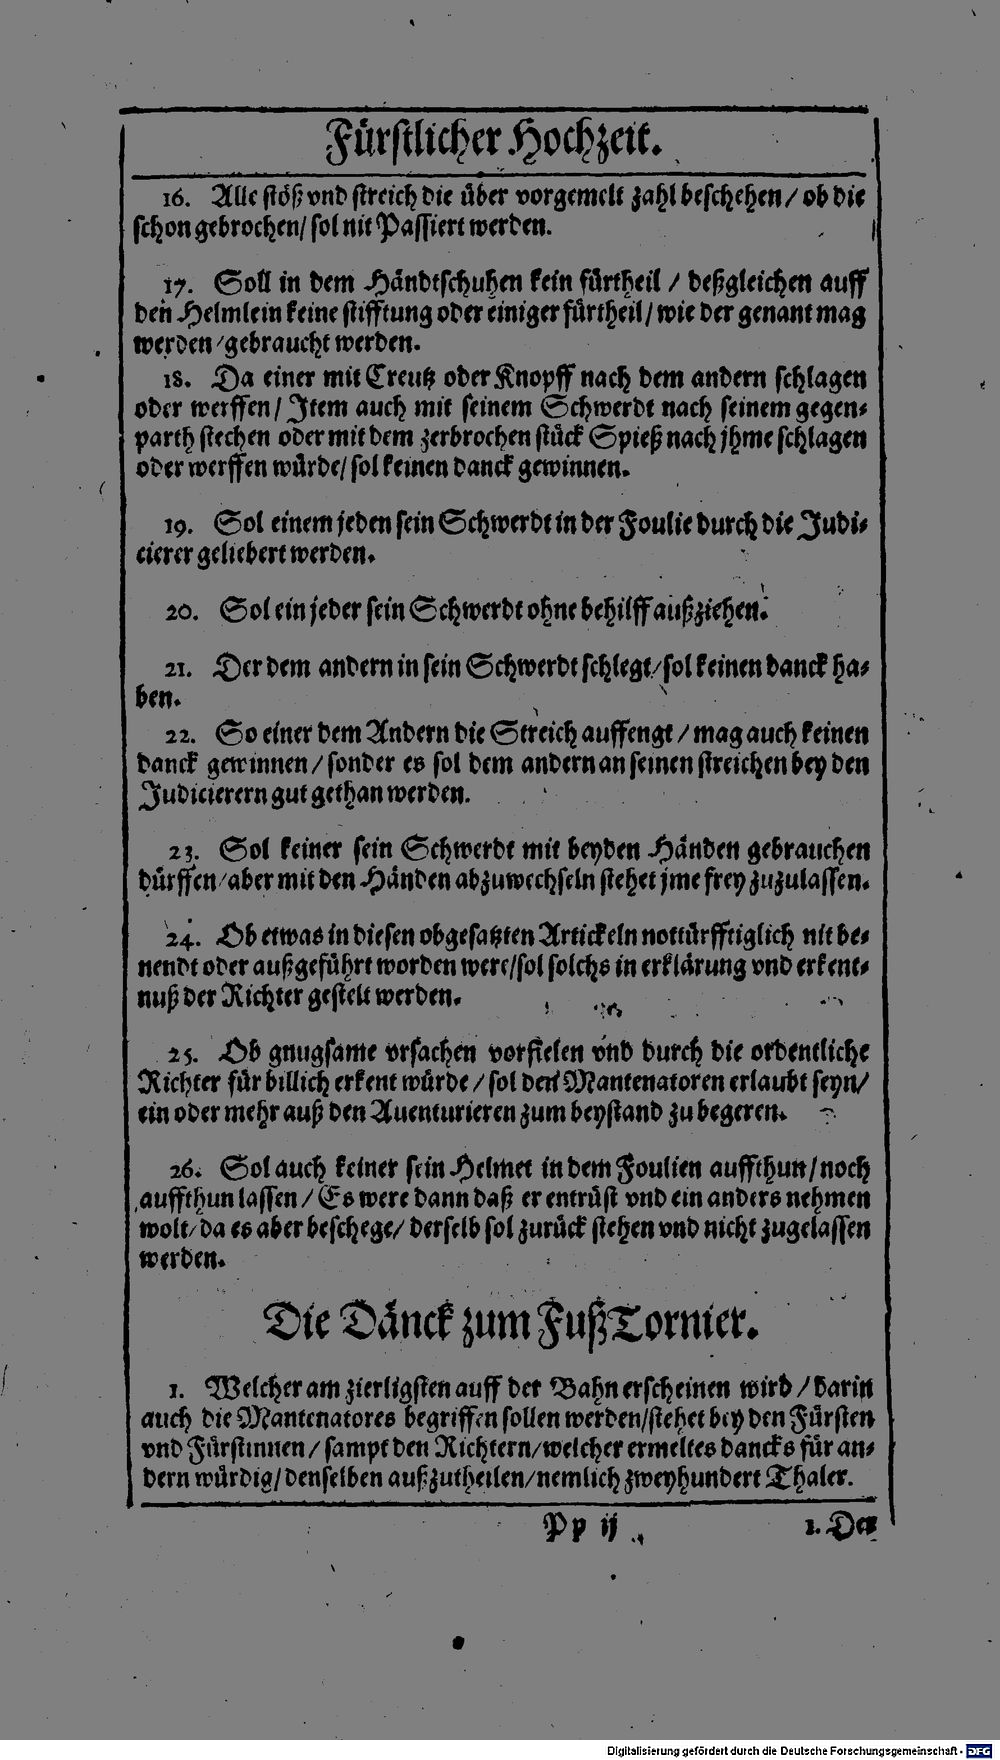 Fürstlicher Hochzeit.
16. Alle stöß vnd streich die über vorgemelt zahl beschehen/ ob die
schon gebrochen/ sol nit Passiert werden.
17. Soll in dem Händtschuhen kein fürtheil / deßgleichen auff
den Helmlein keine stifftung oder einiger fürtheil/ wie der genant mag
werden/gebraucht werden.
18. Da einer mit Creutz oder Knopff nach dem andern schlagen
oder werffen/ Item auch mit seinem Schwerdt nach seinem gegen-
parth stechen oder mit dem zerbrochen stück Spieß nach jhme schlagen
oder werffen würde/ sol keinen danck gewinnen.
19. Sol einem jeden sein Schwerdt in der Foulie durch die Judi-
cierer geliebert werden.
20. Sol ein jeder sein Schwerdt ohne behilff außziehen.
21. Der dem andern in sein Schwerdt schlegt/sol keinen danck ha-
ben.
22. So einer dem Andern die Streich auffengt / mag auch keinen
danck gewinnen/ sonder es sol dem andern an seinen streichen bey den
Judicierern gut gethan werden.
23. Sol keiner sein Schwerdt mit beyden Händen gebrauchen
dürffen/aber mit den Händen abzuwechseln stehet jme frey zuzulassen.
24. Ob etwas in diesen obgesatzten Artickeln nottürfftiglich nit be-
nendt oder außgeführt worden were/sol solchs in erklärung vnd erkent-
nuß der Richter gestelt werden.
25. Ob gnugsame vrsachen vorfielen vnd durch die ordentliche
Richter für billich erkent würde / sol den Mantenatoren erlaubt seyn/
ein oder mehr auß den Auenturieren zum beystand zu begeren.
26. Sol auch keiner sein Helmet in dem Foulien auffthun/noch
auffthun lassen / Es were dann daß er entrüst vnd ein anders nehmen
wolt/da es aber beschege/ derselb sol zurück stehen vnd nicht zugelassen
werden.
Die Dänck zum FußTornier.
1. Welcher am zierligsten auff der Bahn erscheinen wird / darin
auch die Mantenatores begriffen sollen werden/stehet bey den Fürsten
vnd Fürstinnen/ sampt den Richtern/welcher ermeltes dancks für an-
dern würdig/denselben außzutheilen/nemlich zweyhundert Thaler.
Pp ij
1. Der
Digitalisierung gefördert durch die Deutsche Forschungsgemeinschaft - DFG